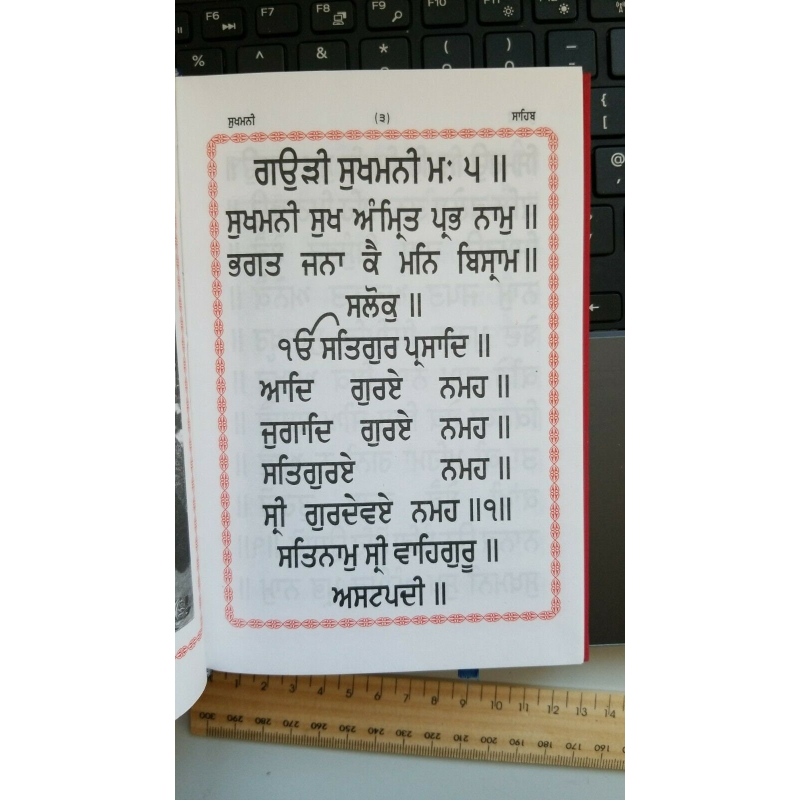 F6 F7 F8 F9 F10 F11 F12
% ^ & * ( ) _
{
[
@
ਸੁਖਮਨੀ (੩) ਸਾਹਿਬ
ਗਉੜੀ ਸੁਖਮਨੀ ਮਃ ੫ ॥
ਸੁਖਮਨੀ ਸੁਖ ਅੰਮ੍ਰਿਤ ਪ੍ਰਭ ਨਾਮੁ ॥
ਭਗਤ ਜਨਾ ਕੈ ਮਨਿ ਬਿਸ੍ਰਾਮ॥
ਸਲੋਕੁ ॥
ੴ ਸਤਿਗੁਰ ਪ੍ਰਸਾਦਿ ॥
ਆਦਿ ਗੁਰਏ ਨਮਹ ॥
ਜੁਗਾਦਿ ਗੁਰਏ ਨਮਹ ॥
ਸਤਿਗੁਰਏ ਨਮਹ ॥
ਸ੍ਰੀ ਗੁਰਦੇਵਏ ਨਮਹ ॥੧॥
ਸਤਿਨਾਮੁ ਸ੍ਰੀ ਵਾਹਿਗੁਰੂ ॥
ਅਸਟਪਦੀ ॥
1 2 3 4 5 6 7 8 9 10 11 12 13 14
300 290 280 270 260 250 240 230 220 210 200 190 180 170 160